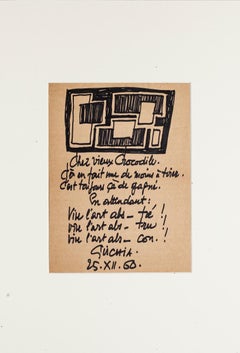 Cher vieux Crocodile.
Çà en fait une de moins à tirer.
c'est toujours çà de gagné.
En attendant:
Vive l'art abs_ tré!
Vive l'art abs_ tru!
Vive l'art abs_ con!
25.XII.60.